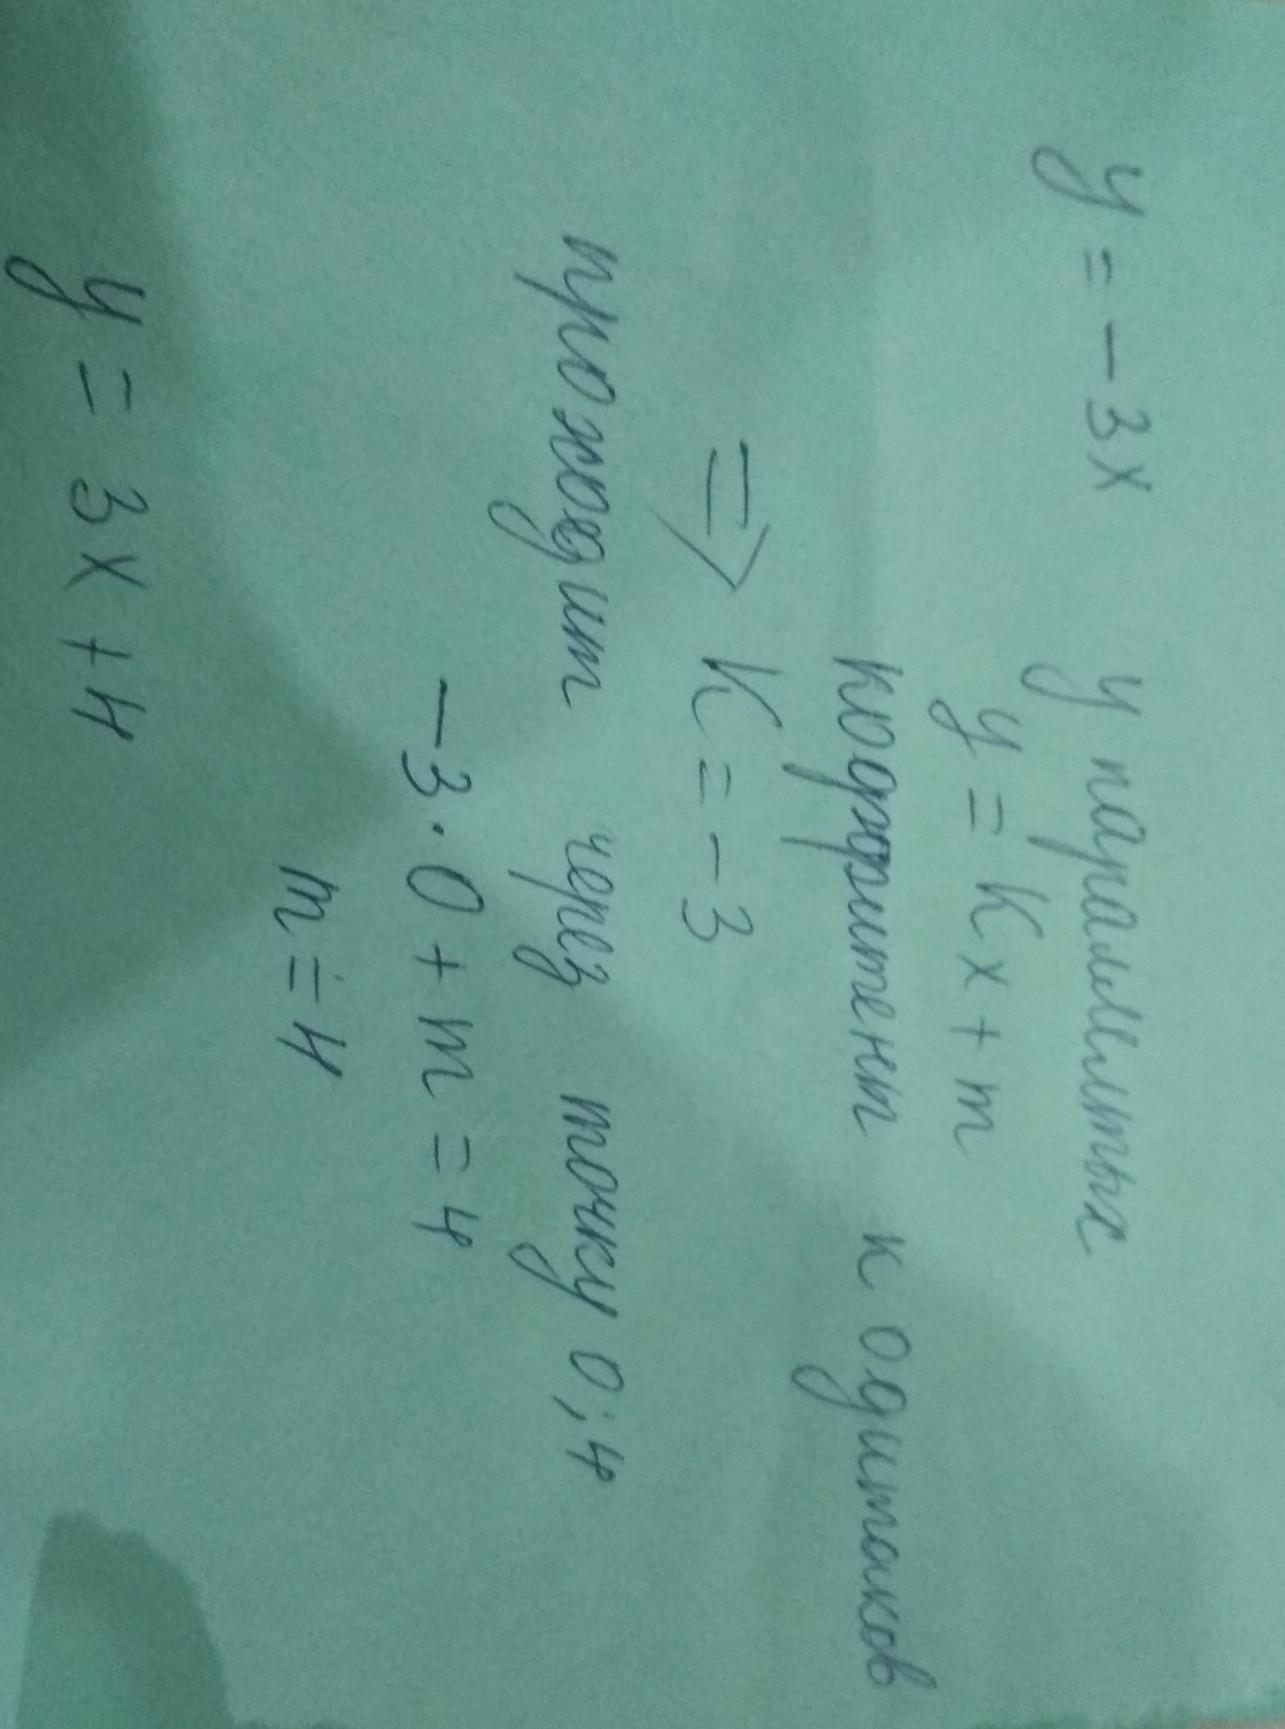 y = -3x у параллельных
y = Kx + m
коэффитент к одинаков
⇒ K = -3
проходит через точку 0;4
-3·0 + m = 4
m = 4
y = 3x + 4